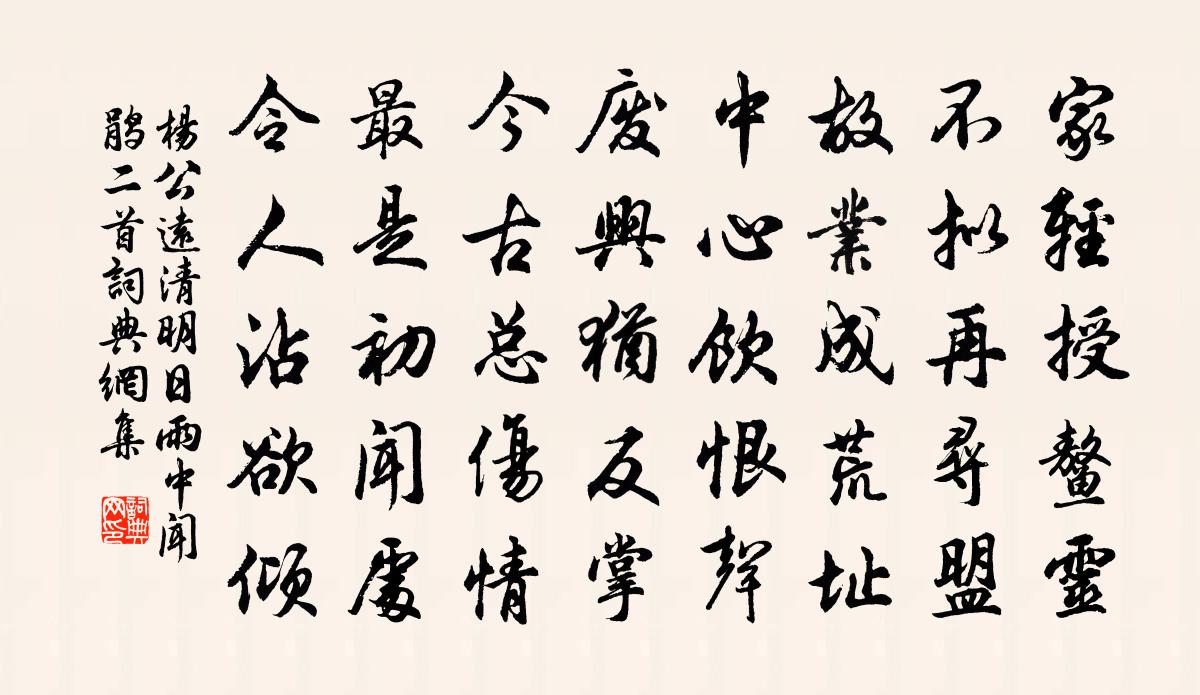 家輕授鼇靈
不拟再尋盟
故業成荒址
中心飲恨聲
廢興猶反掌
今古总傷情
最是初聞處
令人沾欲傾
楊公遠清明日雨中聞
鹃二首詞典網集
詞典
网印